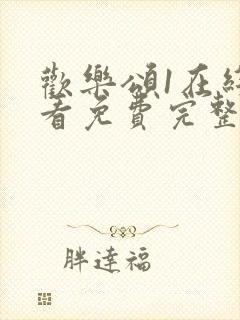 歡樂頌1在線
看免費完整
胖達福